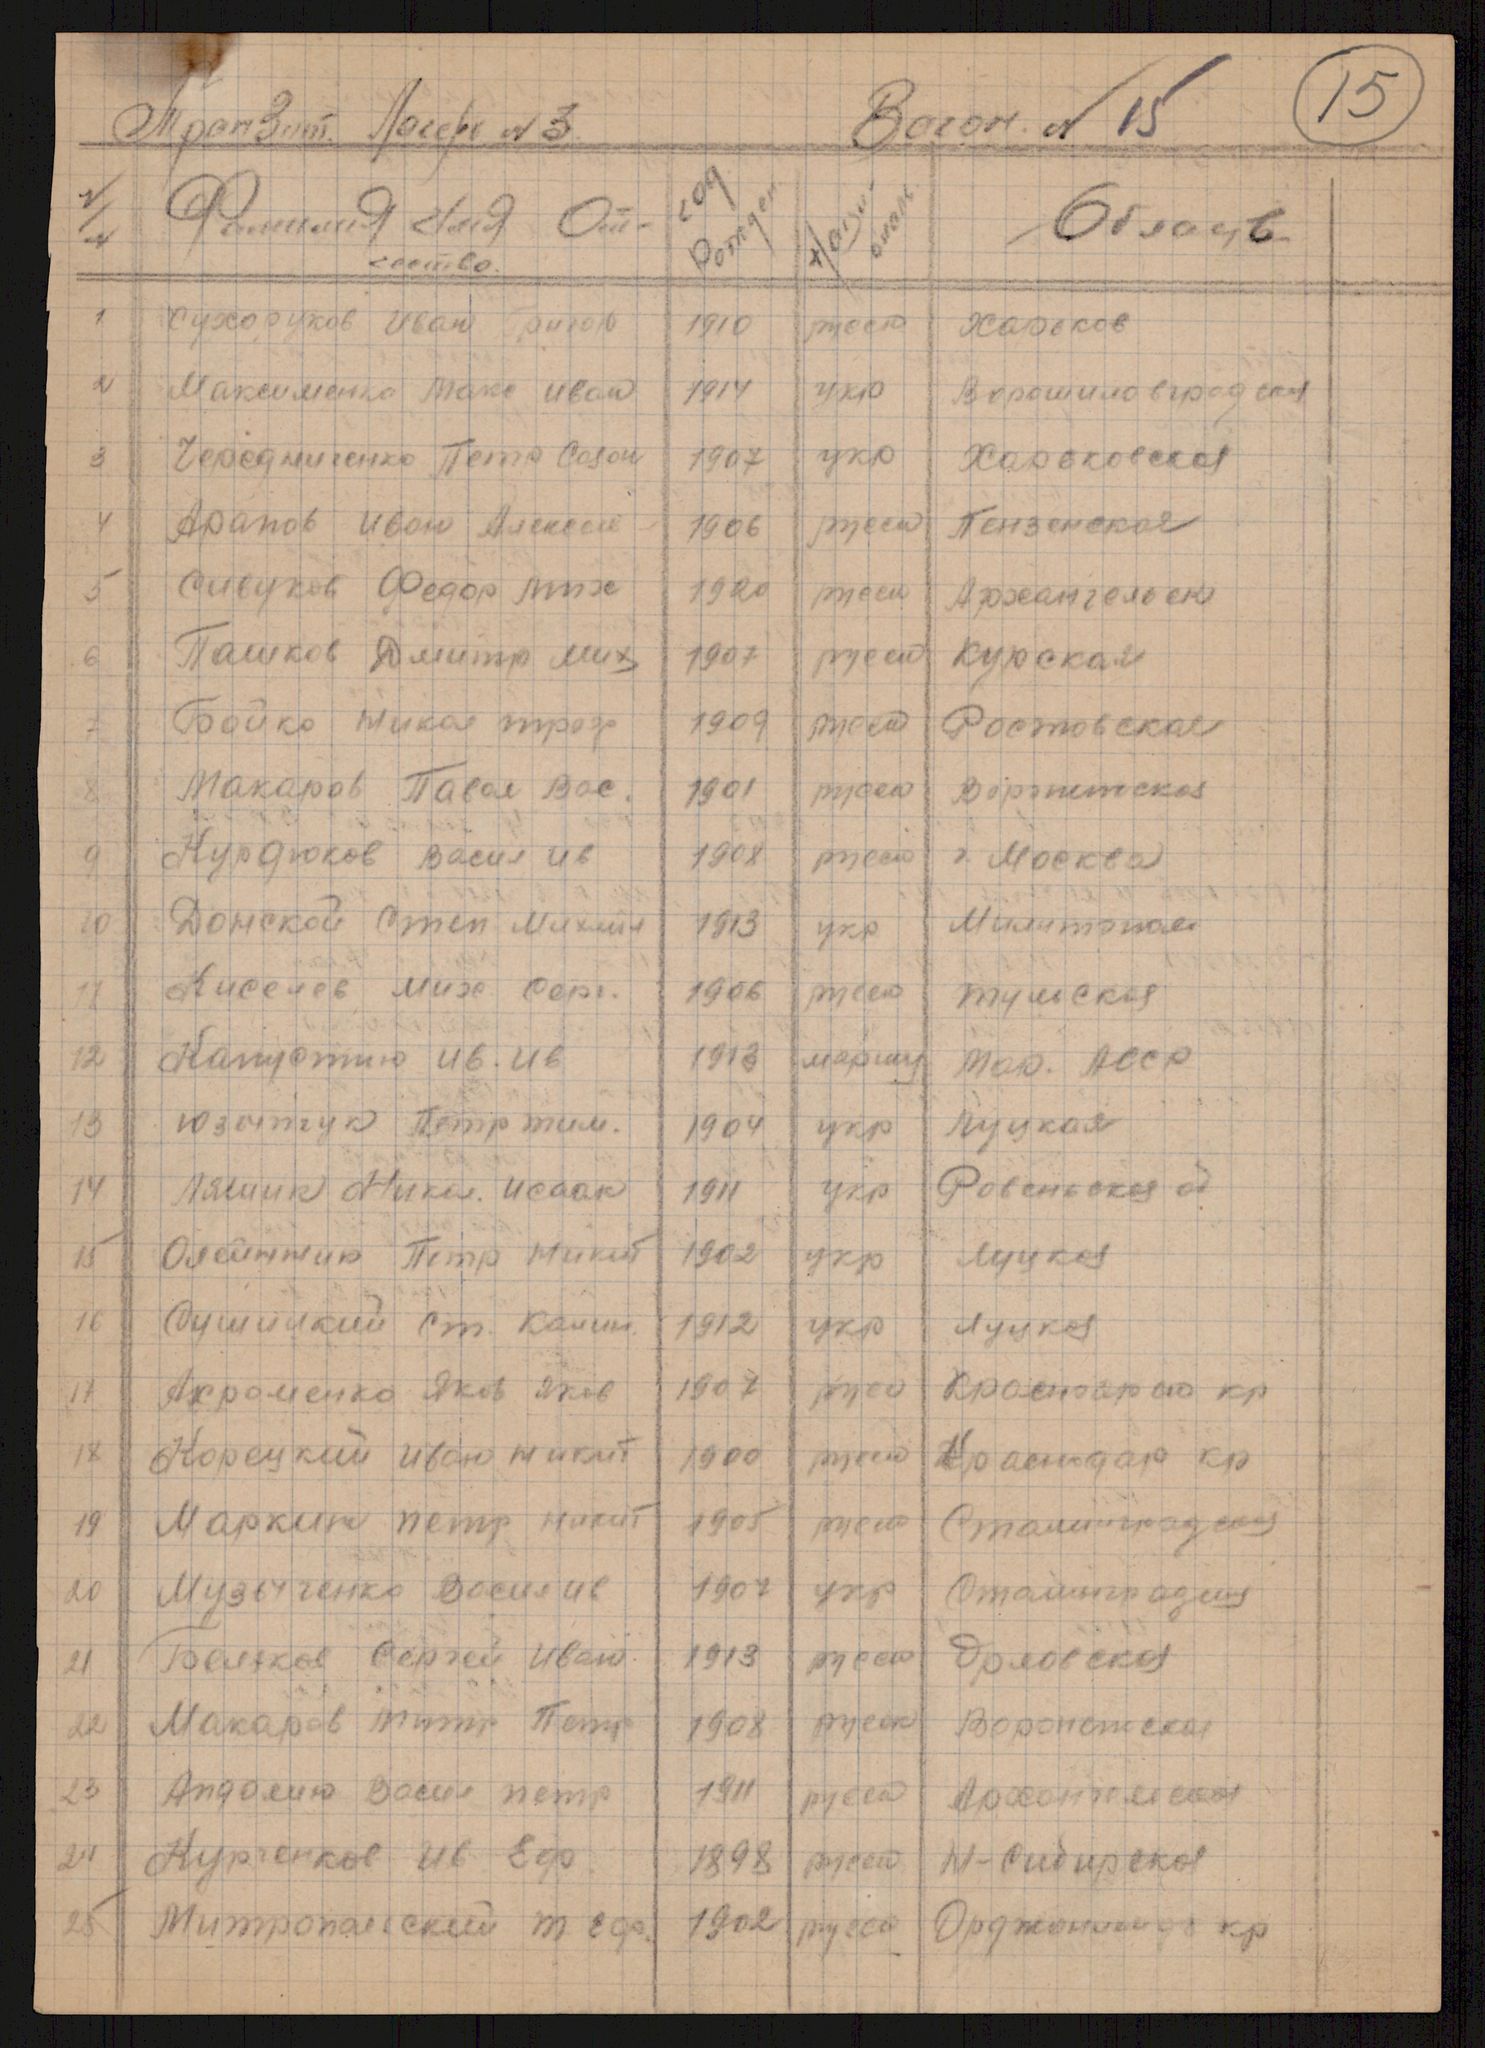 Транзит. Лагерь N 3. Вагон. N 15 15
N/N Фамилия Имя От- год рожден Наци- ональ Область
чество.
1 Сухоруков Иван Григор 1910 русск Харьков
2 Максименко Макс Иван 1914 укр Ворошиловградская
3 Чередниченко Петр Созон 1907 укр Харьковская
4 Арапов Иван Алексей 1906 русск Пензенская
5 Сивуков Федор Мих 1920 русск Архангельск
6 Пашков Дмитр Мих 1907 русск Курская
7 Бойко Никол 1909 русск Ростовская
8 Макаров Павел Вас. 1901 русск Воронежская
9 Курдюков Васил Ив 1908 русск г. Москва
10 Донской Степ Михайл 1913 укр Милитополь
11 Киселев Мих Серг. 1906 русск Тульская
12 Капустин Ив. Ив 1913 мариец Мар. АССР
13 Юзепчук Петр Тим. 1904 укр Луцкая
14 Ляшик Никол. Исаак 1911 укр Ровеньская об
15 Олейнник Петр Никит 1902 укр Луцкая
16 Сушицкий Ст. Калин. 1912 укр Луцкая
17 Акроменко Яков Яков 1907 русс Краснодарск кр
18 Корецкий Иван Никит 1900 русск Краснодар кр
19 Маркин Петр Никит 1905 русск Сталинградская
20 Музыченко Васил Ив 1907 укр Сталинградская
21 Беляков Сергей Иван. 1913 русск Орловская
22 Макаров Дмитр Петр 1908 русск Воронежская
23 Васил Петр 1911 русск Архангельская
24 Курченков Ив Еф. 1898 русск Н-Сибирская
25 Митропольский Т Еф. 1902 русск Орджоникидз кр